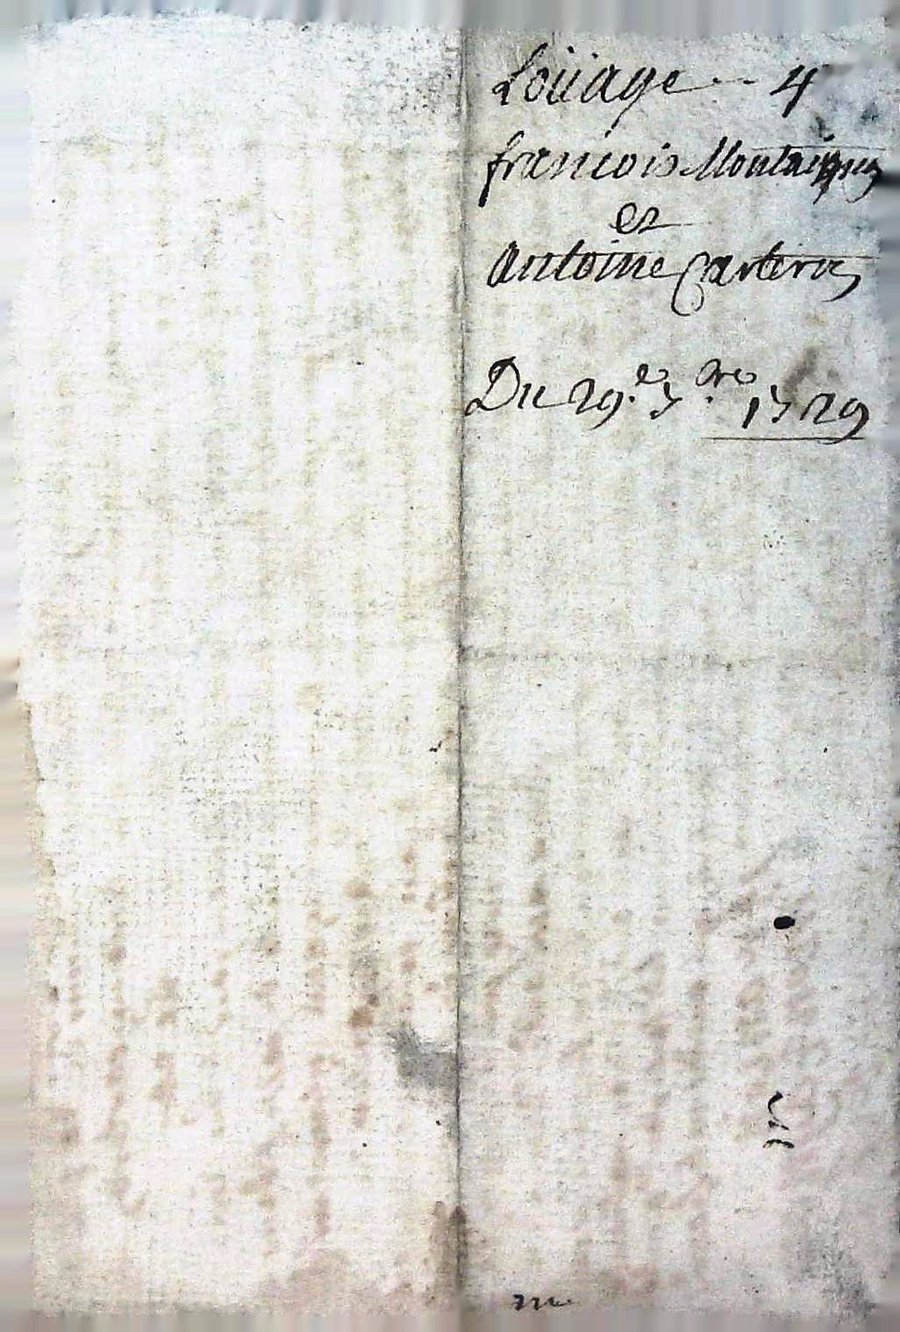 Loüage -- 4
francois Montaigne
et
Antoine Carterie
Du 29.e 7.bre 1729